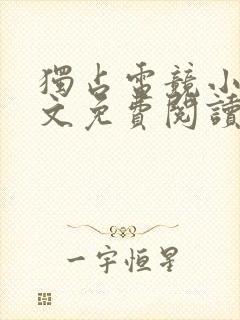 獨占雷競小
文免費閱讀
一宇恒星